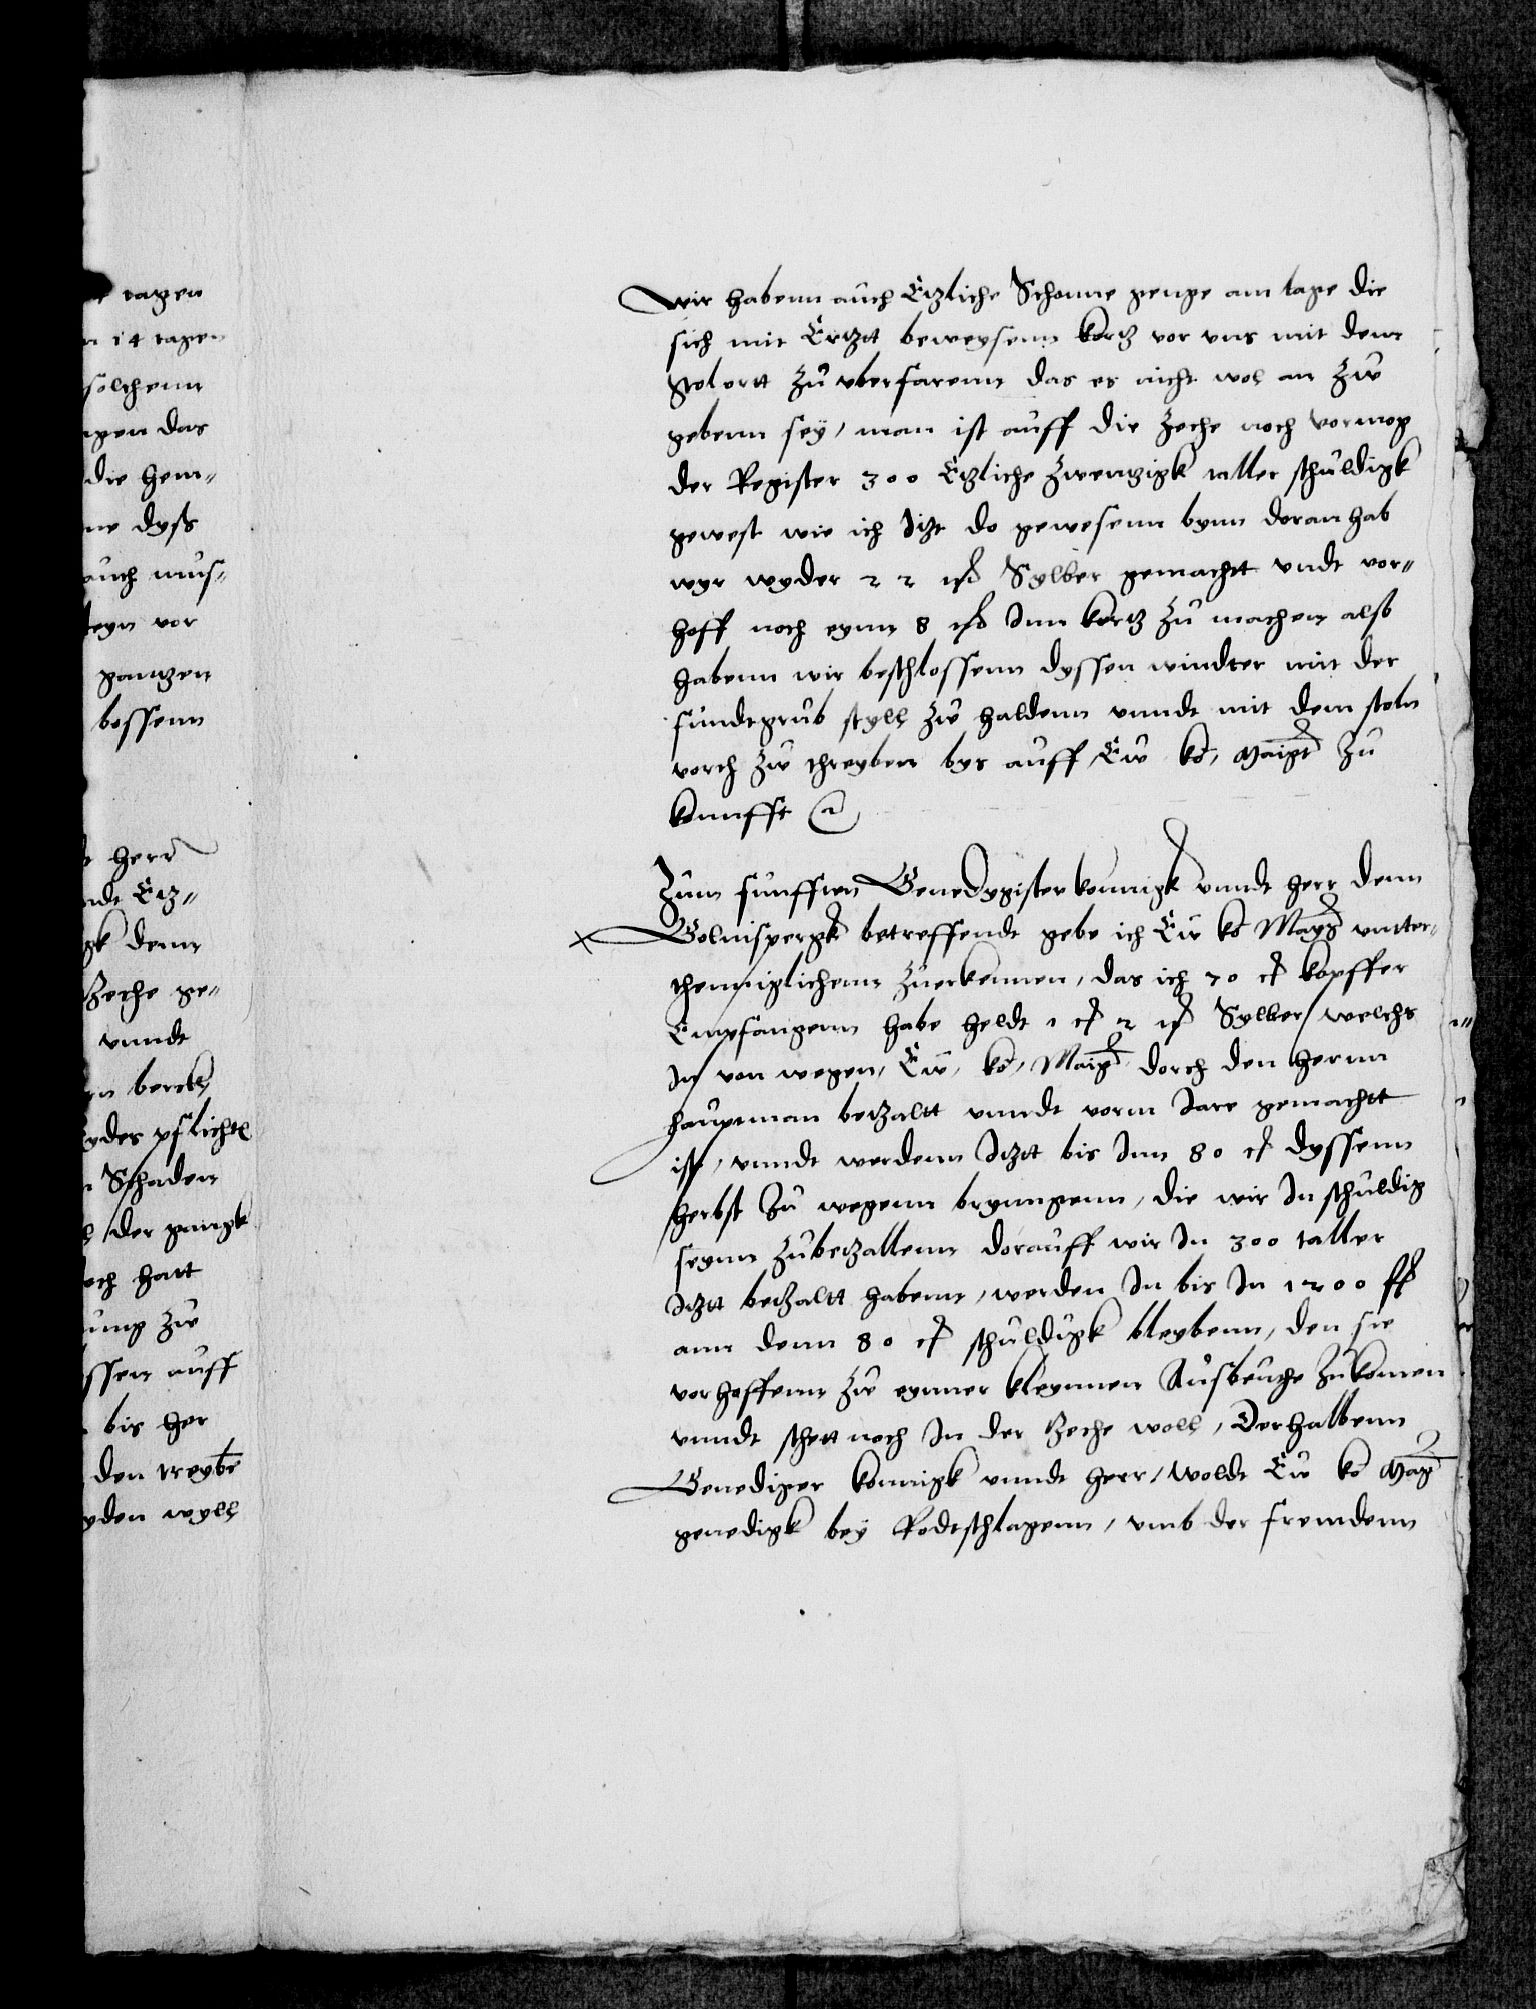 tagen
n 14 tagen
solchenn
ngen das
die hem-
ne dyss
auch mus-
teyn vor
gantzen
bossenn
herr
ndt Etz-
gk denn
Zeche ge-
vnndt
nn berck,
ydes pflicht
Schaden
der gangk
och hatt
ung zw
ssen auff
bis her
den treybe
yden wyll
Wir habenn auch Etzliche Schonne genge am tage die
sich mit Ertztt beweysenn kortz vor vns mit dem
stolortt zu vberfarenn das es nicht wol an zw
gebenn sey, man ist auff die Zeche noch vormog
der Register 300 Etzliche zwentzigk taller schuldigk
gewest wie ich Itzt do gewesenn bynn doran hab
wyr wyder 22 Sylber gemachtt vndt vor-
hoff noch eynn 8 Inn kortz zu machen also
habenn wir beschlossenn dyssen windter mit der
fundtgrub styll zw haldenn vnndt mit dem stoln
vorch zw threyben bys auff Ew ko, Maigt zu
kunfft
Zum funfften Genedygister konnigk vnndt herr denn
Golnispergk betreffendt gebe ich Ew ko Mayg vntter-
thenniglichenn zuerkennen, das ich 70 ct kopffer
Empfangenn habe heldt 1 ct 2 Sylber, welchs
In von wegen, Ew, ko, Maigt dorch den hernn
hauptman betzaltt vnndt vorm Jare gemachtt
ist, vnndt werdenn Itztt bis Inn 80 ct dyssenn
herbst zu wegenn brynngenn, die wir In schuldig
seynn zubetzallenn dorauff wir In 300 taller
Itztt betzaltt habenn, werden In bis In 1200 fl
ann denn 80 ct schuldigk bleybenn, den sie
vorhoffenn zw eynner kleynnen Ausbeuthe zukomen
vnndt stett noch In der Zeche woll, Derhalbenn
Genediger konnigk vnndt herr, woldt Ew ko Mag
genedigk bey Rodtschlagenn, vmb der fremdenn